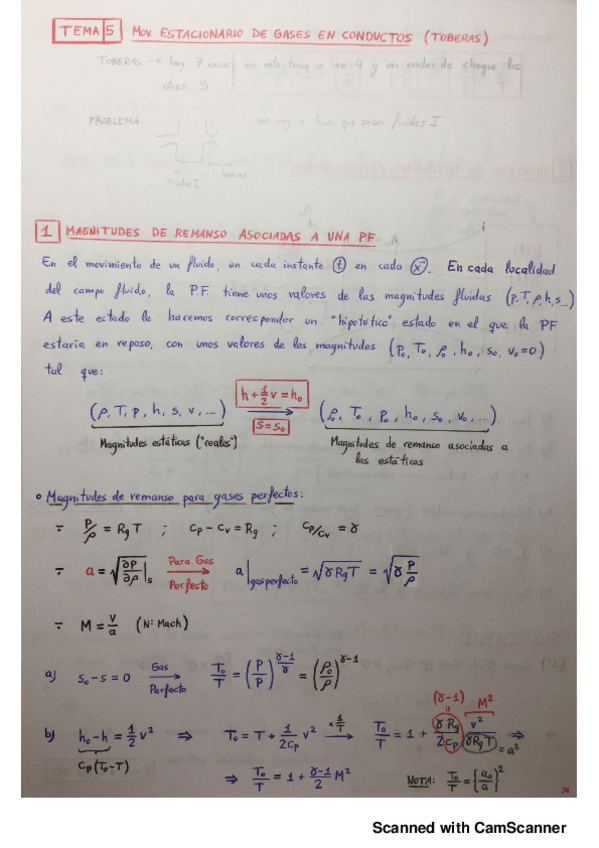 TEMA 5 MOV. ESTACIONARIO DE GASES EN CONDUCTOS (TOBERAS)
TOBERAS → hay 7 casos en este tema se ven 4 y en ondas de choque los
otros 3
PROBLEMA: no voy a tener que saber fluidos I
fluidos I toberas
1 MAGNITUDES DE REMANSO ASOCIADAS A UNA PF
En el movimiento de un fluido, en cada instante (t) en cada (x⃗). En cada localidad
del campo fluido, la P.F. tiene unos valores de las magnitudes fluidas (p,T,ρ,h,s...)
A este estado le hacemos corresponder un "hipotético" estado en el que la PF
estaría en reposo, con unos valores de las magnitudes (p₀, T₀, ρ₀, h₀, s₀, v₀=0)
tal que:
(ρ, T, p, h, s, v, ...) h+½v=h₀ ⟹ s=s₀ (ρ₀, T₀, p₀, h₀, s₀, v₀, ...)
Magnitudes estáticas ("reales") Magnitudes de remanso asociadas a
las estáticas
• Magnitudes de remanso para gases perfectos:
∵ P/ρ = RgT ; Cp - Cv = Rg ; Cp/Cv = γ
∵ a = √(∂P/∂ρ)|s Para Gas Perfecto → a|gas perfecto = √(γRgT) = √(γ P/ρ)
∵ M = v/a (Nº Mach)
a) s₀-s = 0 Gas Perfecto → T₀/T = (P₀/P)^((γ-1)/γ) = (ρ₀/ρ)^(γ-1)
(γ-1) M²
b) h₀-h = ½v² ⇒ T₀ = T + 1/(2Cp) v² ×1/T → T₀/T = 1 + γRg/(2Cp) v²/(γRgT) ⇒
Cp(T₀-T) = a²
⇒ T₀/T = 1 + (γ-1)/2 M² NOTA: T₀/T = {a₀/a}²
Scanned with CamScanner